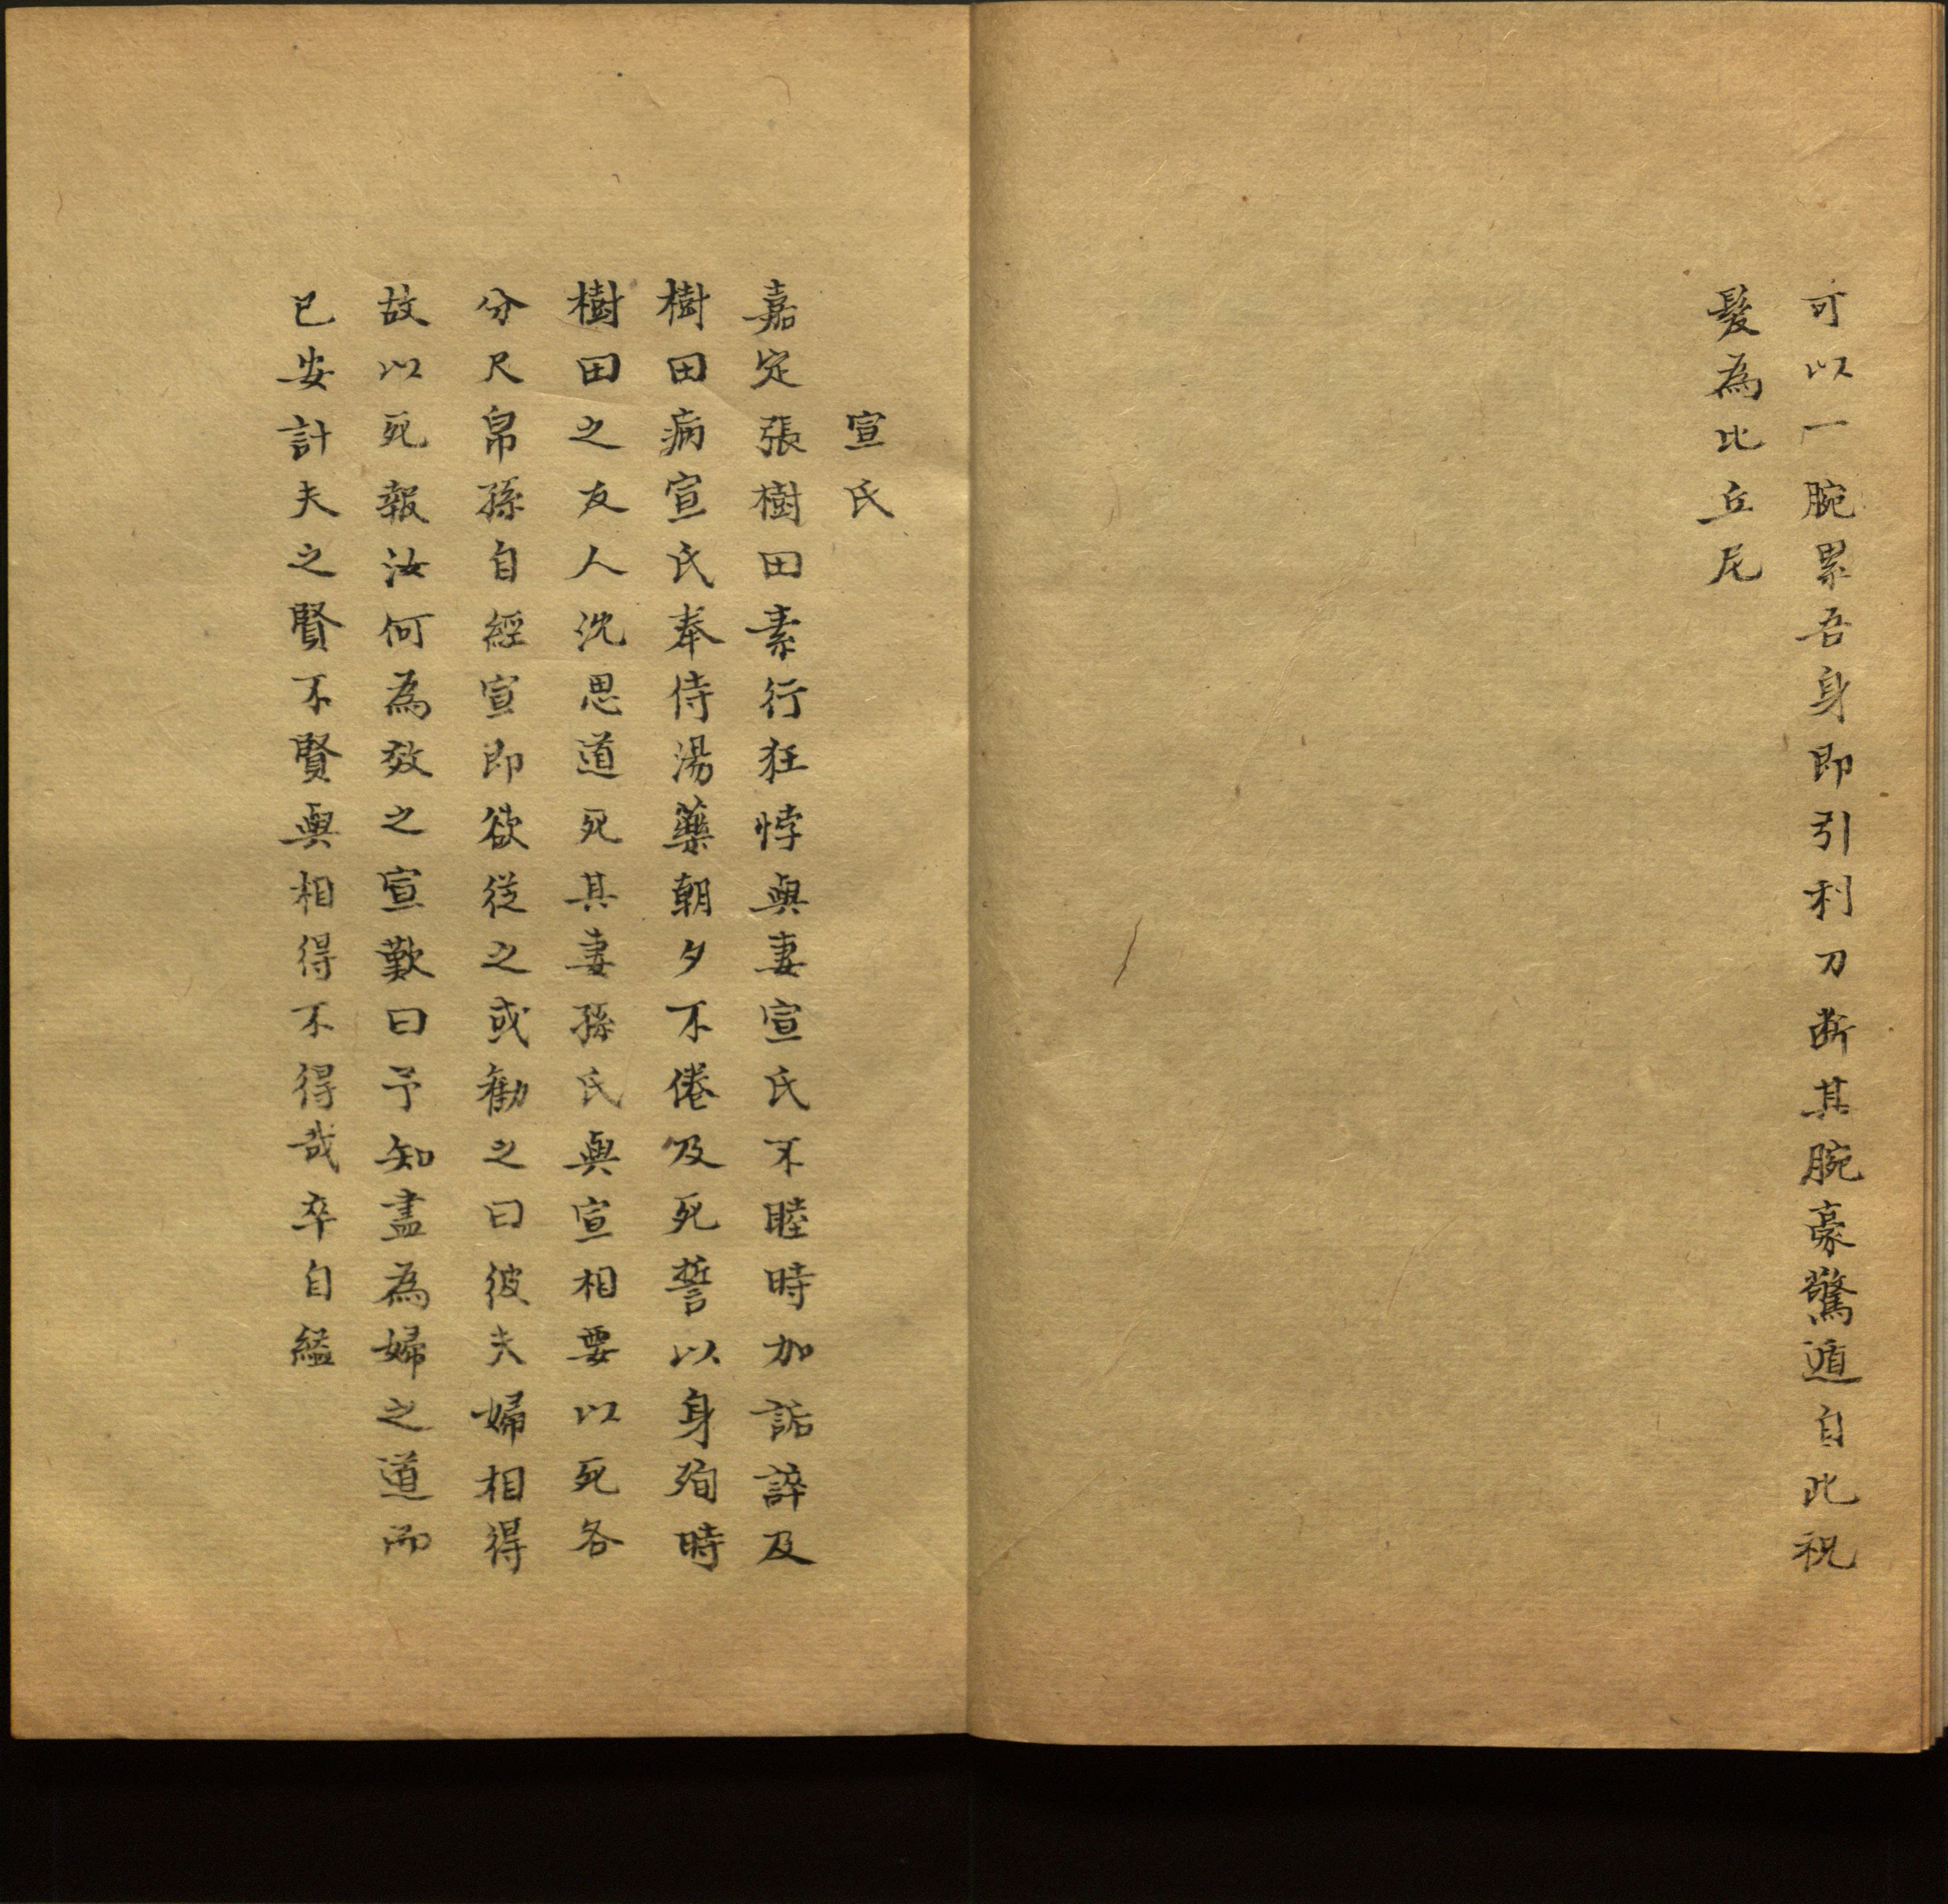 可以一腕累吾身即引利刀斷其腕豪驚遁自此祝
髮為比丘尼
宣氏
嘉定張樹田素行狂悖與妻宣氏不睦時加詬誶及
樹田病宣氏奉侍湯藥朝夕不倦及死誓以身殉時
樹田之友人沈思道死其妻孫氏與宣相要以死各
分尺帛孫自經宣即欲從之或勸之曰彼夫婦相得
故以死報汝何為效之宣歎曰予知盡為婦之道而
已安計夫之賢不賢與相得不得哉卒自縊